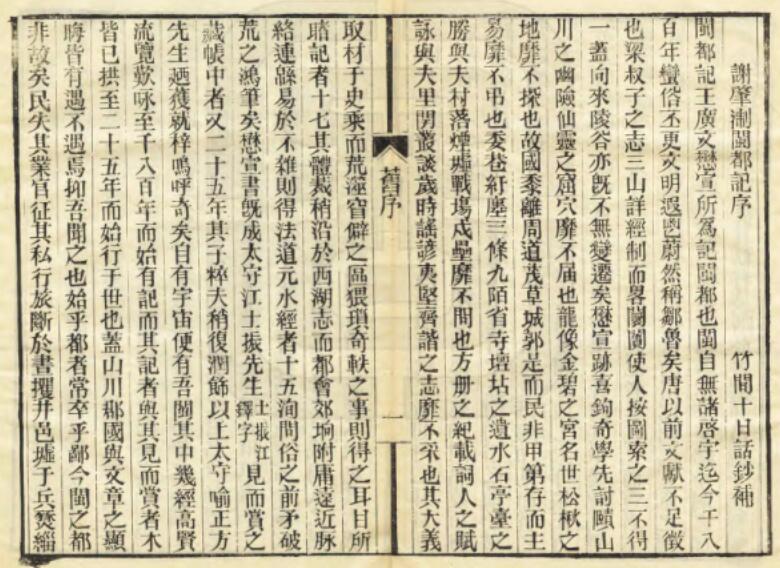 謝肇淛閩都記序 竹間十日話鈔補
閩都記王廣文懋宣所爲記閩都也閩自無諸啓宇迄今千八
百年蠻俗丕更文明遐鬯蔚然稱鄒魯矣唐以前文獻不足徵
也梁叔子之志三山詳經制而畧闤闠使人按圖索之三不得
一蓋向來陵谷亦旣不無變遷矣懋宣跡喜鉤奇學先討賾山
川之幽險仙靈之窟穴靡不届也龍像金碧之宮名世松楸之
地靡不探也故國黍離周道茂草城郭是而民非甲第存而主
易靡不弔也委巷紆廛三條九陌省寺壇坫之遺水石亭臺之
勝與夫村落煙墟戰塲戍壘靡不問也方册之紀載詞人之賦
詠與夫里閈叢談歲時謠諺夷堅齊諧之志靡不采也其大義
舊序
一
取材于史乘而荒蓙窅僻之區猥瑣奇軼之事則得之耳目所
睹記者十七其體裁稍沿於西湖志而都會郊坰附庸遠近脉
絡連緜易於不雜則得法道元水經者十五洵問俗之前矛破
荒之鴻筆矣懋宣書旣成太守江士振先生士振江鐸字見而賞之
藏帳中者又二十五年其子粹夫稍復潤飾以上太守喻正方
先生廼獲就梓嗚呼奇矣自有宇宙便有吾閩其中幾經高賢
流覽歎咏至千八百年而始有記而其記者與其見而賞者木
皆已拱至二十五年而始行于世也蓋山川郡國與文章之顯
晦皆有遇不遇焉抑吾聞之也始乎都者常卒乎鄙今閩之都
非故矣民失其業官征其私行旅斷於晝攫井邑墟于兵燹緇